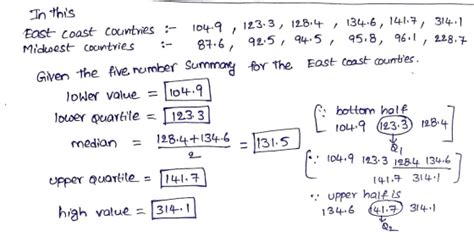 In this
East coast countries :- 104.9 , 123.3 , 128.4 , 134.6 , 141.7 , 314.1
Midwest countries :- 87.6 , 92.5 , 94.5 , 95.8 , 96.1 , 228.7
Given the five number summary for the East coast counties.
lower value = 104.9
lower quartile = 123.3
median = 128.4+134.6 / 2 = 131.5
upper quartile = 141.7
high value = 314.1
[∵ bottom half
104.9 123.3 128.4]
Q1
[∵ 104.9 123.3 128.4 134.6
141.7 314.1]
∵ upper half is
134.6 141.7 314.1
Q2